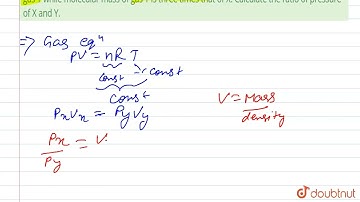 gas Y while molecular mass of gas Y is three times that of X. Calculate the ratio of pressure
of X and Y.
⇒ Gas eqⁿ
PV = nRT
const → const
const
PxVx = PyVy
V = Mass
density
Px = V
Py
doubtnut